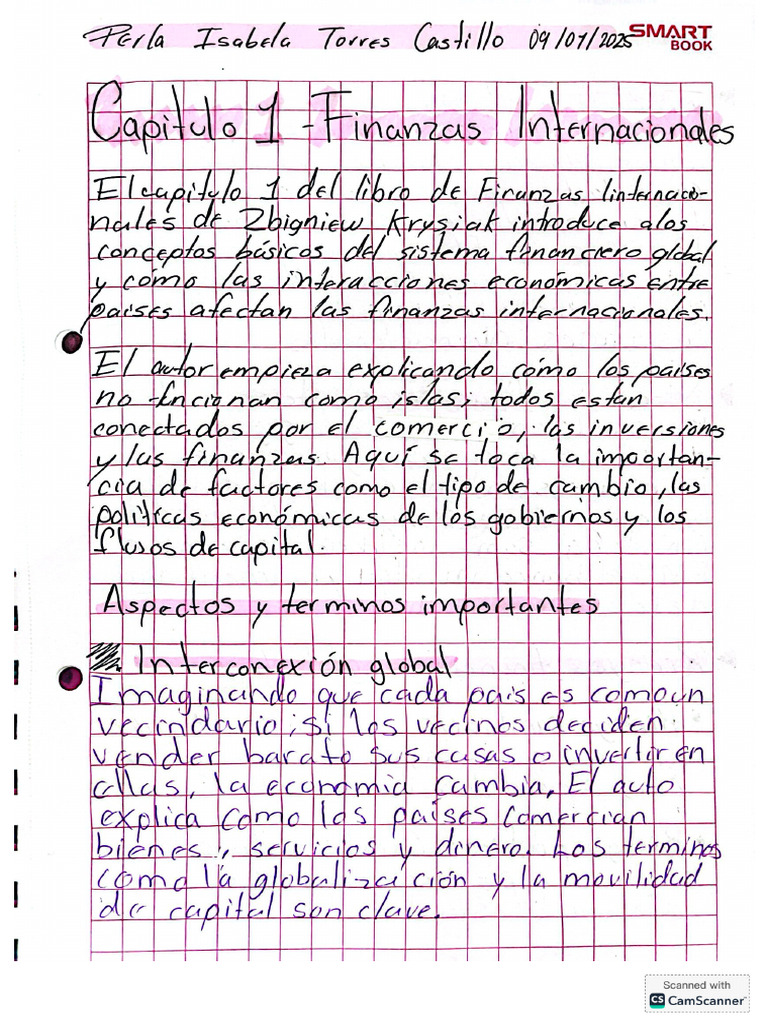 Perla Isabela Torres Castillo 09/01/2025
SMART
BOOK
Capitulo 1 - Finanzas Internacionales
El capitulo 1 del libro de Finanzas Iinternacio-
nales de Zbigniew Krysiak introduce alos
conceptos básicos del sistema financiero global
y cómo las interacciones económicas entre
paises afectan las finanzas internacionales.
El autor empieza explicando cómo los paises
no funcionan como islas; todos estan
conectados por el comercio, las inversiones
y las finanzas. Aquí se toca la importan-
cia de factores como el tipo de cambio, las
políticas económicas de los gobiernos y los
flusos de capital.
Aspectos y terminos importantes
Interconexión global
Imaginando que cada pais es como un
vecindario, si los vecinos deciden
vender barato sus casas o invertir en
ellas, la economia cambia. El auto
explica como los países comercian
bienes, servicios y dinero. Los terminos
como la globalización y la movilidad
de capital son clave.
Scanned with
CS CamScanner